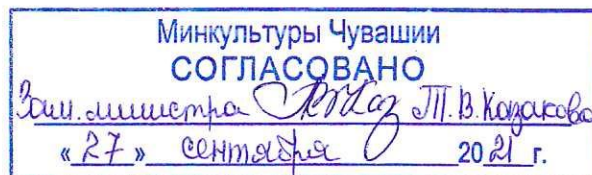 Минкультуры Чувашии
СОГЛАСОВАНО
Зам. министра Т.В. Казакова
«27» сентября 2021 г.